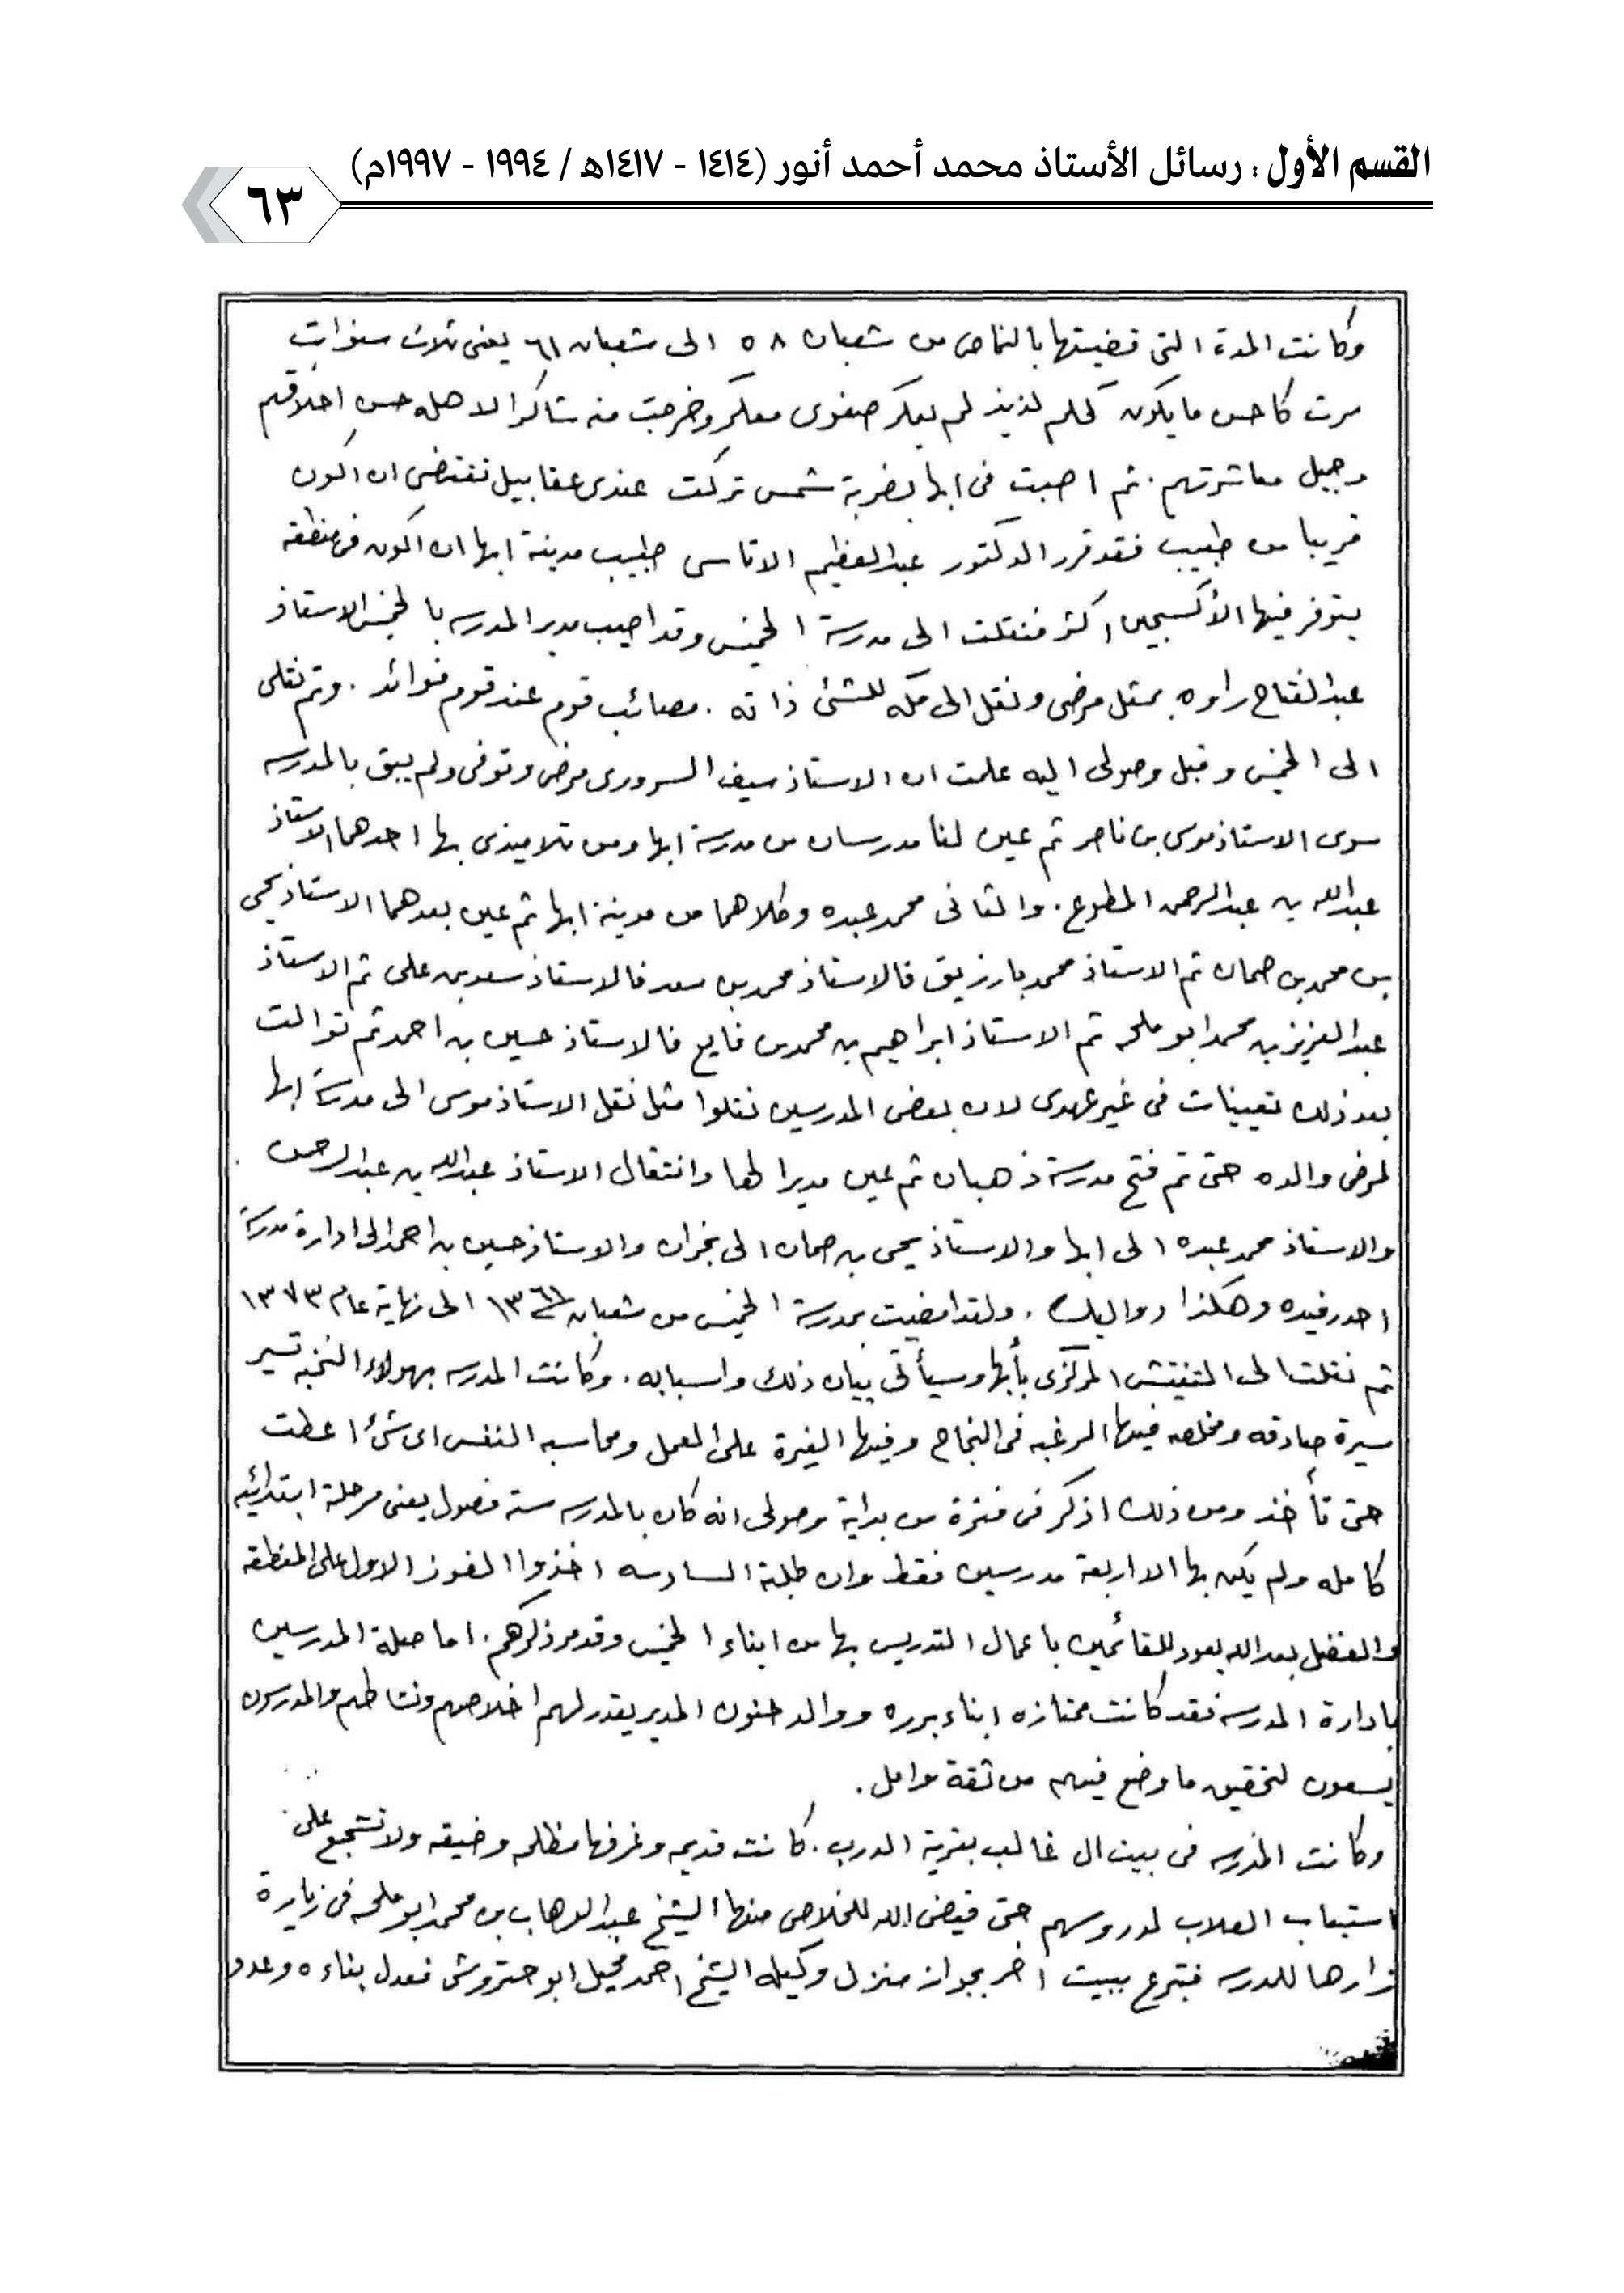 القسم الأول : رسائل الأستاذ محمد أحمد أنور (١٤١٤ - ١٤١٧هـ / ١٩٩٤ - ١٩٩٧م)
٦٣
وكانت المدة التى قضيتها بالنماص من شعبان ٥٨ الى شعبان ٦١ يعنى ثلاث سنوات
مرت كاحسن ما يكون كحلم لذيذ لم يعكر صفوى معكر وخرجت منه شاكرا لاهله حسن اخلاقهم
وجميل معاشرتهم . ثم اصبت فى ابها بضربة شمس تركت عندى عقابيل تقتضى ان اكون
قريبا من طبيب فقد قرر الدكتور عبدالعظيم الاتاسى طبيب مدينة ابها ان اكون فى منطقه
يتوفر فيها الأكسجين اكثر فنقلت الى مدرسة الخميس وقد اصيب مدير المدرسه بالخميس الاستاذ
عبدالفتاح راوه بمثل مرضى ونقل الى مكه للشئ ذاته . مصائب قوم عند قوم فوائد . وتم نقلى
الى الخميس وقبل وصولى اليه علمت ان الاستاذ سيف السرورى مرض وتوفى ولم يبق بالمدرسه
سوى الاستاذ موسى بن ناصر ثم عين لنا مدرسان من مدرسة ابها ومن تلاميذى بها احدهما الاستاذ
عبدالله بن عبدالرحمن المطوع . والثانى محمد عبده وكلاهما من مدينة ابها ثم عين بعدهما الاستاذ يحى
بن محمد بن صمان ثم الاستاذ محمد بارزيق فالاستاذ محمد بن سعد فالاستاذ سعد بن على ثم الاستاذ
عبدالعزيز بن محمد ابو ملحه ثم الاستاذ ابراهيم بن محمد بن فايع فالاستاذ حسين بن احمد ثم توالت
بعد ذلك تعيينات فى غير عهدى لان بعض المدرسين نقلوا مثل نقل الاستاذ موسى الى مدرسة ابها
لمرض والده حتى تم فتح مدرسة ذهبان ثم عين مديرا لها وانتقال الاستاذ عبدالله بن عبدالرحمن
والاستاذ محمد عبده الى ابها والاستاذ يحى بن صمان الى نجران والاستاذ حسين بن احمد الى ادارة مدرسة
احد رفيده وهكذا دواليك . ولقد امضيت بمدرسة الخميس من شعبان ١٣٦١ الى نهاية عام ١٣٧٣
ثم نقلت الى التفتيش المركزى بأبها وسيأتى بيان ذلك واسبابه . وكانت المدرسه بهولاء النخبه تسير
سيرة صادقه ومخلصه فيها الرغبه فى النجاح وفيها الغيرة على العمل ومحاسبه النفس اى شئ اعطت
حتى تأخذ ومن ذلك اذكر فى فترة من بداية وصولى انه كان بالمدرسه ستة فصول يعنى مرحلة ابتدائيه
كامله ولم يكن بها الا اربعة مدرسين فقط وان طلبة السادسه اخذوا الفوز الاول على المنطقه
والفضل بعد الله يعود للقائمين باعمال التدريس بها من ابناء الخميس وقد مر ذكرهم . اما صلة المدرسين
بادارة المدرسه فقد كانت ممتازه ابناء برره ووالد حنون المدير يقدر لهم اخلاصهم ونشاطهم والمدرسون
يسعون لتحقيق ما وضع فيهم من ثقة وامل .
وكانت المدرسه فى بيت ال غالب بقرية الدرب . كانت قديمه وغرفها مظلمه وضيقه ولا تشجع على
استيعاب الطلاب لدروسهم حتى قيض الله للخلاص منها الشيخ عبدالوهاب بن محمد ابو ملحه فى زيارة
زارها للمدرسه فتبرع ببيت اخر بجوار منزل وكيله الشيخ احمد محيل ابو حتروش فعدل بناءه وعدد